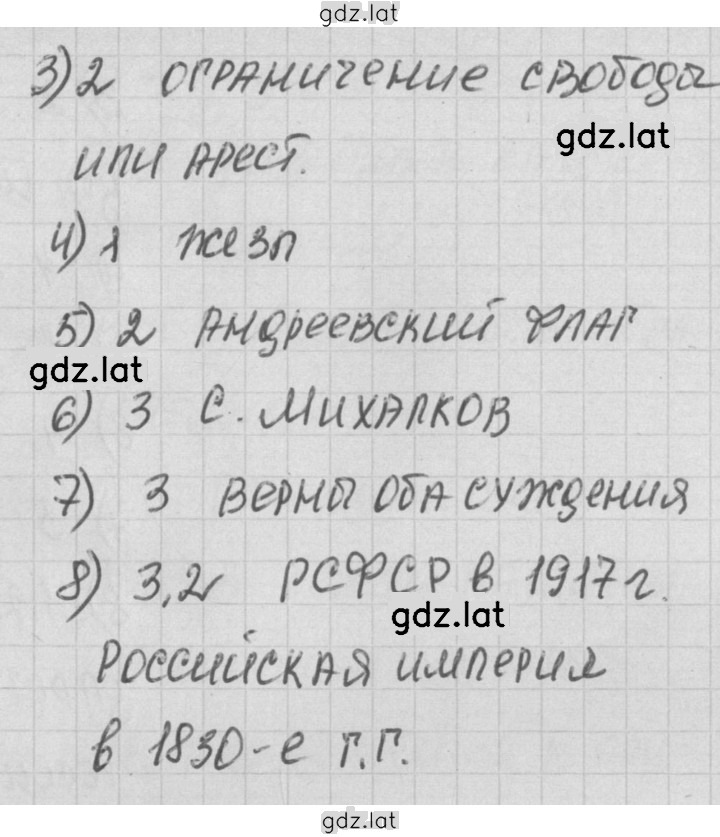 gdz.lat
3) 2 ограничение свободы
gdz.lat
или арест.
4) 1 жезл
5) 2 Андреевский флаг
gdz.lat
6) 3 С. Михалков
7) 3 верны оба суждения
8) 3,2 РСФСР в 1917 г.
gdz.lat
Российская империя
в 1830-е г.г.
gdz.lat